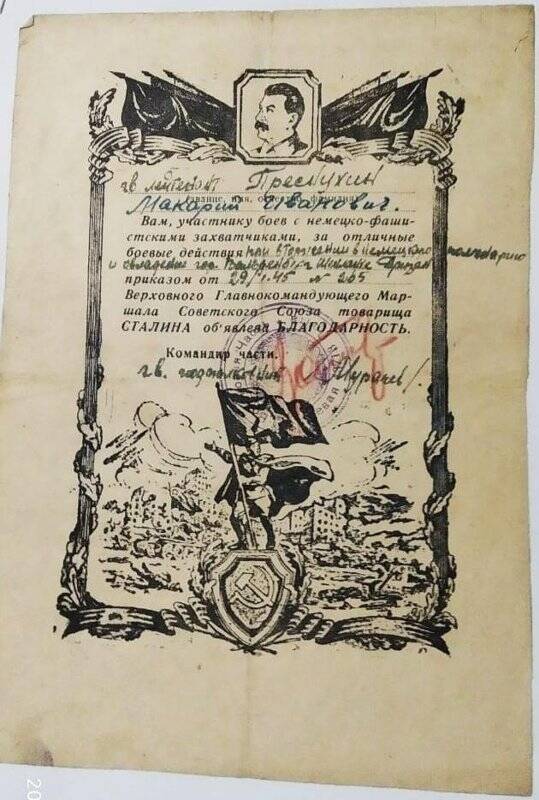 гв лейтенант Преснухин
звание, имя, отчество, фамилия
Макарий Иванович.
Вам, участнику боев с немецко-фаши-
стскими захватчиками, за отличные
боевые действия при вторжении в немецкую
и овладение гор.
приказом от 29/1.45 № 265
Верховного Главнокомандующего Мар-
шала Советского Союза товарища
СТАЛИНА об'явлена БЛАГОДАРНОСТЬ.
Командир части.
гв. подполковник
20